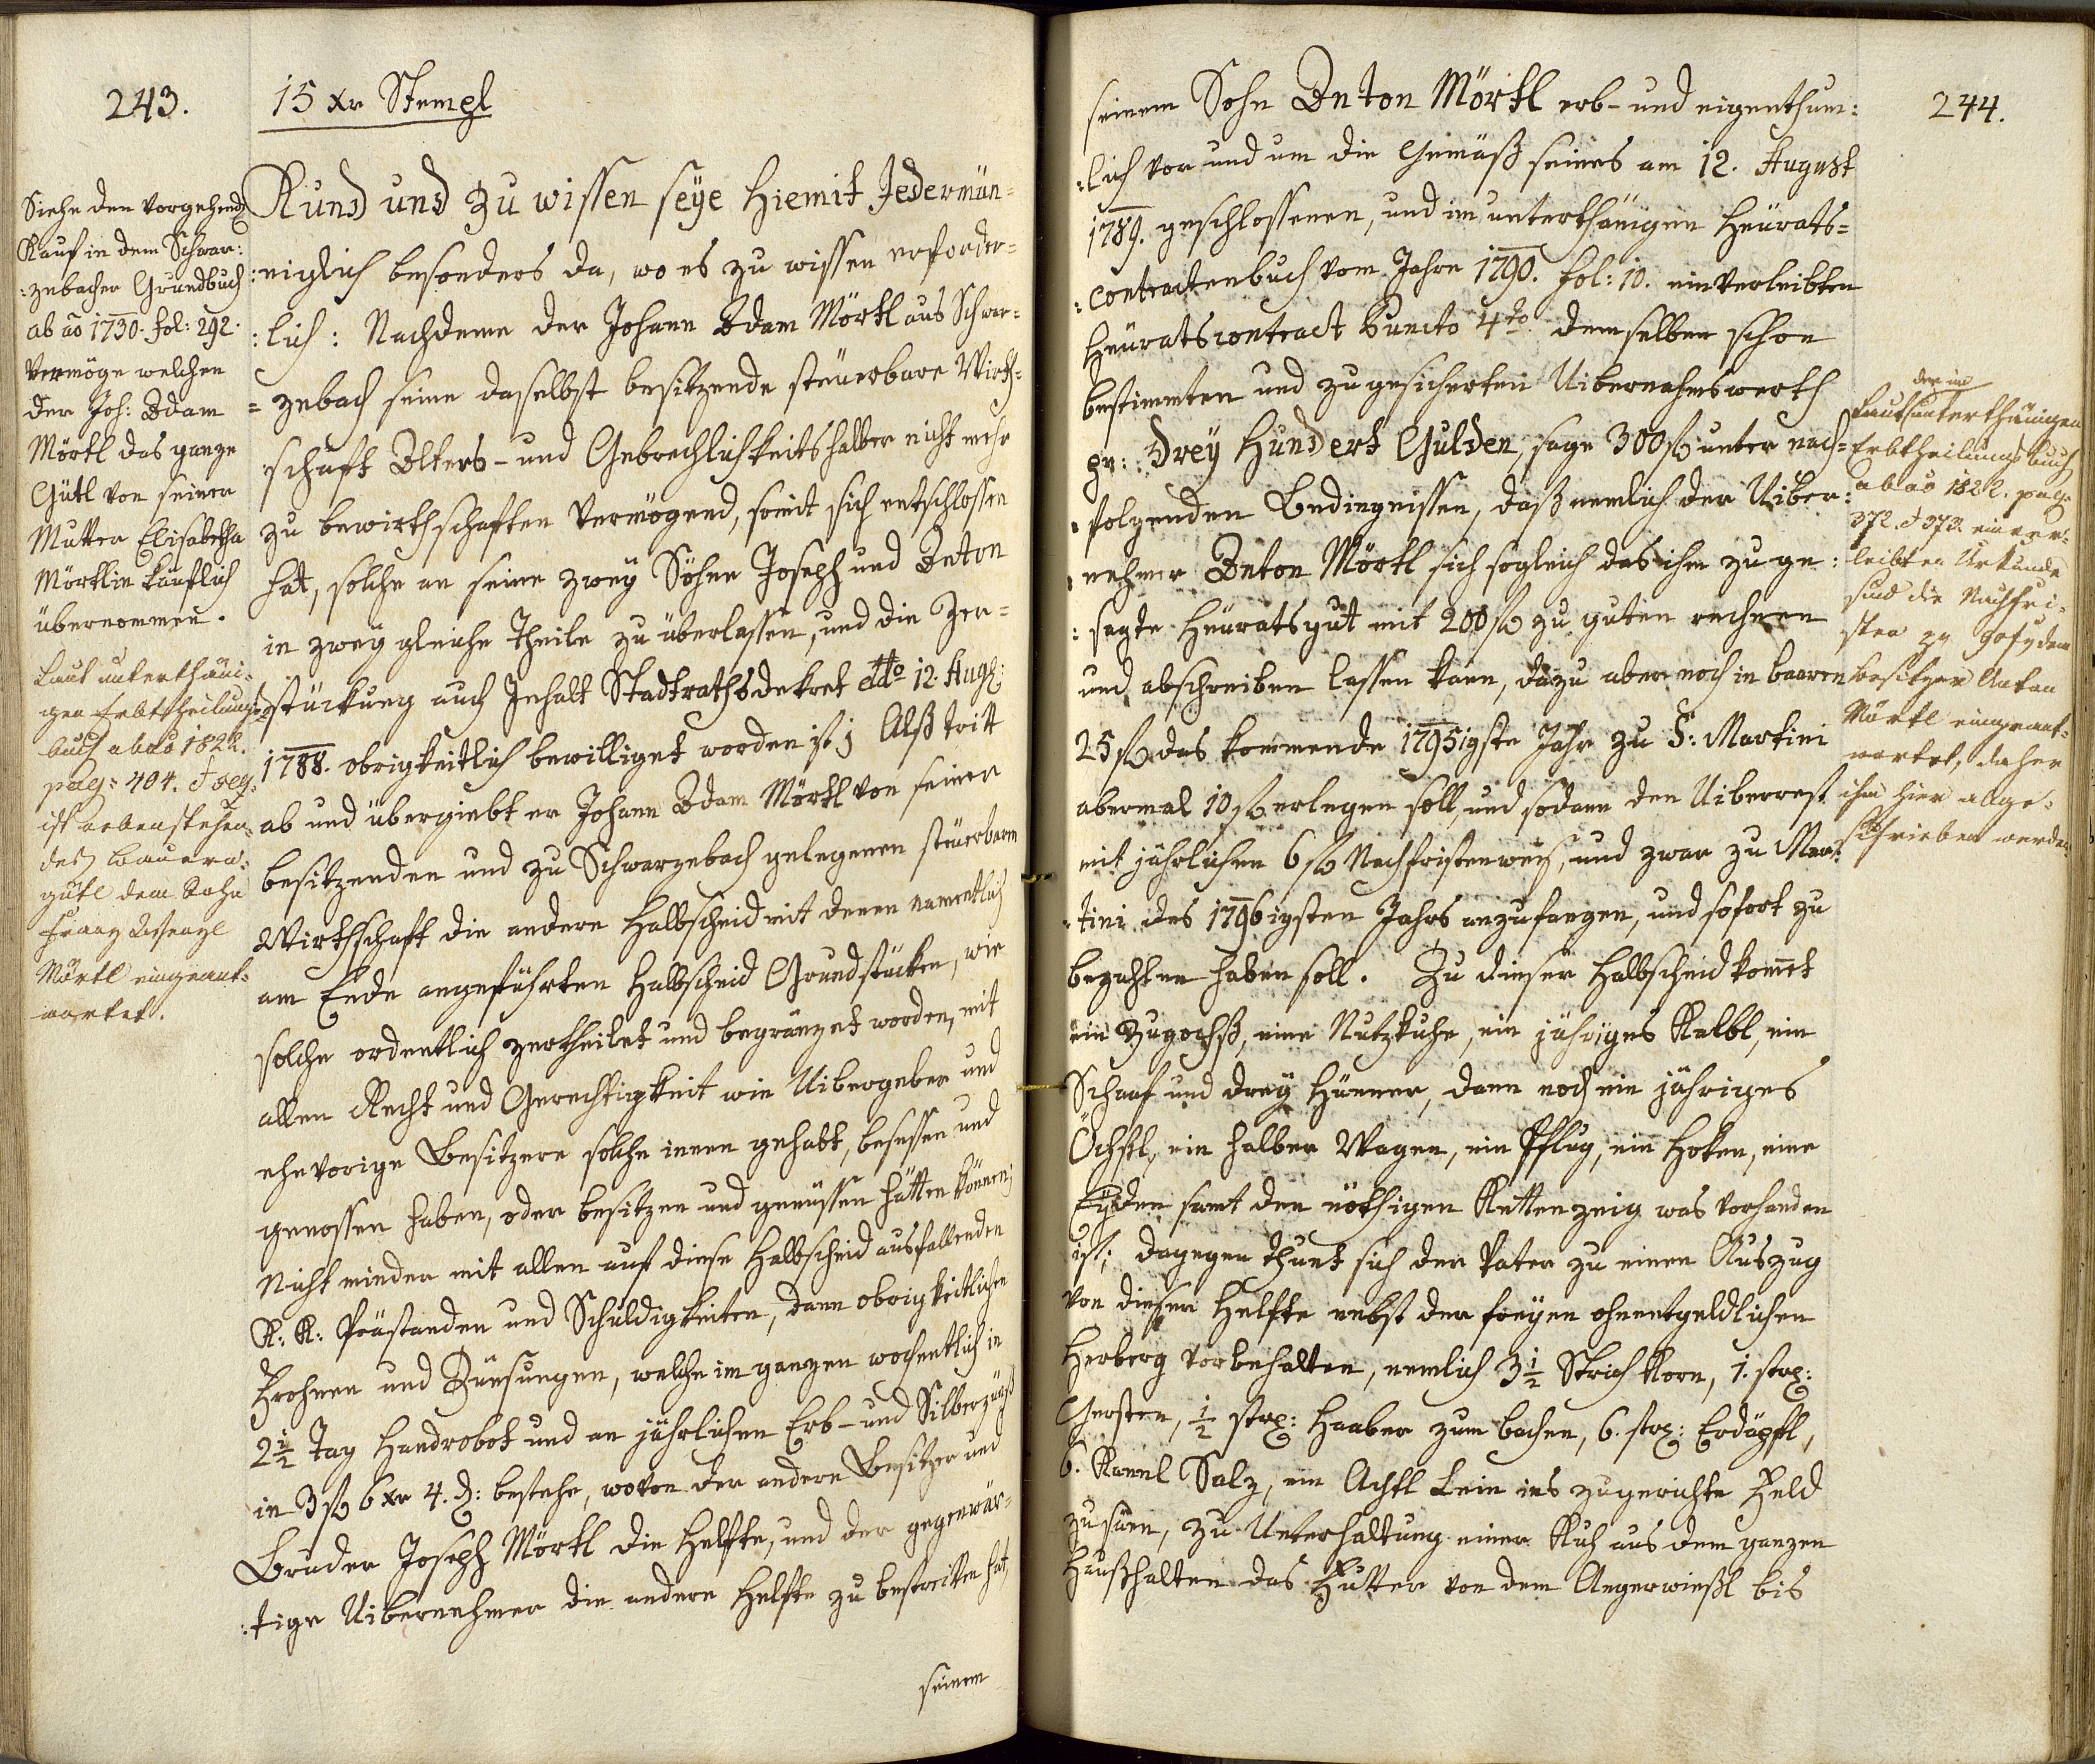 243.
15 xr Stempl
Siehe den vorgehend
Kauf in dem Schwar:
:zebacher Grundbuch
ab ao 1730. fol: 292.
Vermöge welchen
der Joh: Adam
Mörtl das ganze
Gütl von seiner
Mutter Elisabetha
Mörtlin käuflich
übernommen.
Laut unterthäni-
gen Erbtheilungs-
buch ab ao 1822.
pag: 404. & seq:
ist nebenstehen-
des Bauern-
gütl dem Sohn
Franz Wenzl
Mörtl eingeant-
wortet.
Kund und zu wissen seye hiemit Jedermän=
:niglich besonders da, wo es zu wissen erforder=
:lich: Nachdeme der Johann Adam Mörtl aus Schwar=
=zebach seine daselbst besitzende steuerbare Wirth=
:schaft Alters- und Gebrechlichkeitshalber nicht mehr
zu bewirthschaften vermögend, somit sich entschlossen
hat, solche an seine zwey Söhne Joseph und Anton
in zwey gleiche Theile zu überlassen, und die Zer=
:stückung auch Inhalt Stadtrathsdekret ddto 12. Aug:
1788. obrigkeitlich bewilliget worden ist; Alß tritt
ab und übergiebt er Johann Adam Mörtl von seiner
besitzenden und zu Schwarzebach gelegenen steuerbaren
Wirthschaft die andere Halbscheid mit denen namentlich
am Ende angeführten Halbscheid Grundstücken, wie
solche ordentlich zertheilet und begränzet worden, mit
allen Recht und Gerechtigkeit wie Uibergeber und
ehevorige Besitzere solche innen gehabt, besessen und
genossen haben, oder besitzen und genüssen hätten können;
Nicht minder mit allen auf diese Halbscheid ausfallenden
K: K: Prästanden und Schuldigkeiten, dann obrigkeitlichen
Frohnen und Zünsungen, welche im ganzen wochentlich in
2½ Tag Handrobot und an jährlichen Erb- und Silberzünß
in 3 fl 6 xr 4. d: bestehe, wovon der andere Besitzer und
Bruder Joseph Mörtl die Helfte, und der gegenwär=
:tige Uibernehmer die andere Helfte zu bestreitten hat,
seinem
244.
seinem Sohn Anton Mörtl erb- und eigenthum:
:lich vor und um die Gemäß seines am 12. August
1789. geschlossenen, und im unterthänigen Heurats=
:contractenbuch vom Jahre 1790. fol: 10. einverleibten
Heuratscontract Puncto 4to demselben schon
bestimmten und zugesicherten Uibernahmswerth
pr: Drey Hundert Gulden, sage 300 fl unter nach=
:folgenden Bedingnissen, daß nemlich der Uiber:
:nehmer Anton Mörtl sich sogleich das ihm zuge:
:sagte Heuratsgut mit 200 fl zu guten rechnen
und abschreiben lassen kann, dazu aber noch in baaren
25 fl das kommende 1795igste Jahr zu S: Martini
abermal 10 fl erlegen soll, und sodann den Uiberrest
mit jährlichen 6 fl Nachfristenweis, und zwar zu Mar:
:tini des 1796igsten Jahrs anzufangen, und sofort zu
bezahlen haben soll. Zu dieser Halbscheid kommt
ein Zugochß, eine Nutzkuhe, ein jähriges Kalbl, ein
Schaaf und drey Hünner, dann noch ein jähriges
Öchsl, ein halber Wagen, ein Pflug, ein Hoken, eine
Eyden samt den nöthigen Kettenzeig was vorhanden
ist; dagegen thuet sich der Vater zu einen Auszug
von dieser Helfte nebst der freyen ohnentgeldlichen
Herberg vorbehalten, nemlich 3½ Strich Korn, 1. str:
Gersten, ½ str: Haaber zum bachen, 6. str: Erdäpfl,
6. Kannl Salz, ein Achtl Lein ins zugerichte Feld
zu säen, zu Unterhaltung einer Kuh aus dem ganzen
Haußhalten das Futter von dem Angerwießl bis
der im
Laut unterthänigen
Erbtheilungsbuch
ab ao 1822. pag.
372. & 373 einver-
leibten Urkunde
sind die Nachfri-
sten dem
Besitzer Anton
Mörtl eingeant-
wortet, daher
ihm hier abge-
schrieben werden.